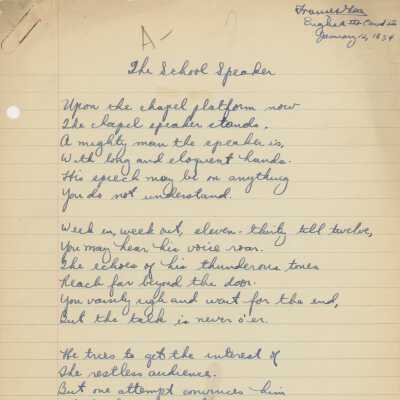 A-
Frances
English
January 12, 1934
The School Speaker
Upon the chapel platform now
The chapel speaker stands.
A mighty man the speaker is,
With long and eloquent hands.
His speech may be on anything
You do not understand.
Week in, week out, eleven-thirty till twelve,
You may hear his voice roar.
The echoes of his thunderous tones
Reach far beyond the door.
You vainly sigh and wait for the end,
But the talk is never o'er.
He tries to get the interest of
The restless audience.
But one attempt convinces him